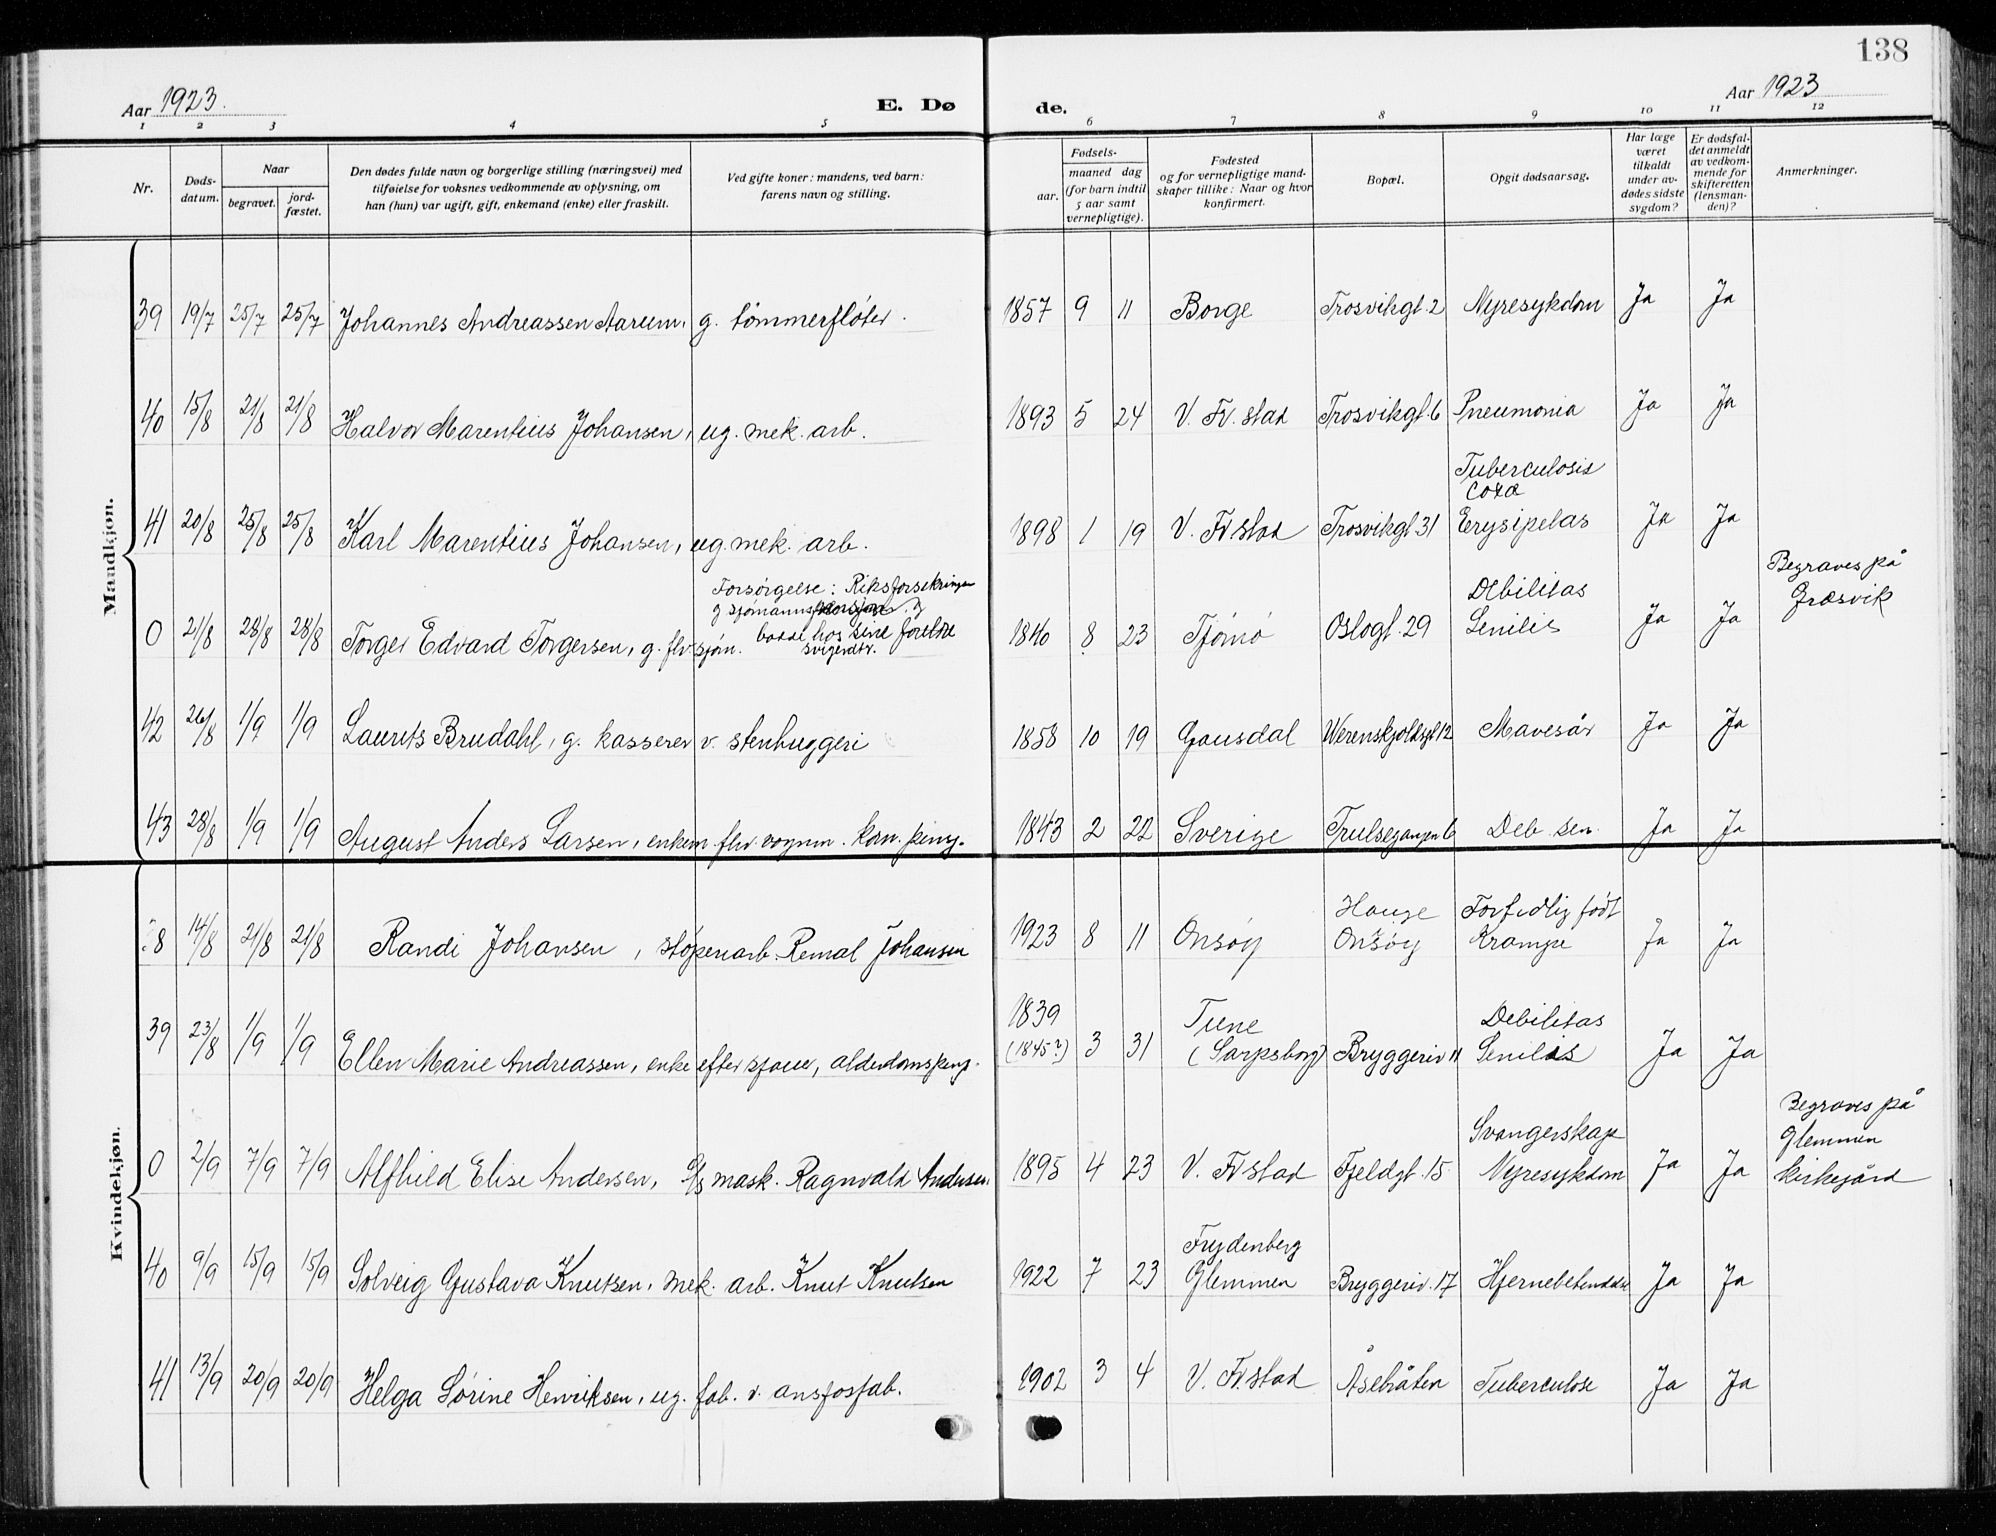 138
Aar 1923.
E. Dø de.
Aar 1923
1 2 3 4 5 6 7 8 9 10 11 12
Nr.
Døds-
datum.
Naar
begravet.
jord-
fæstet.
Den dødes fulde navn og borgerlige stilling (næringsvei) med
tilføielse for voksnes vedkommende av oplysning, om
han (hun) var ugift, gift, enkemand (enke) eller fraskilt.
Ved gifte koner: mandens, ved barn:
farens navn og stilling.
Fødsels-
aar.
maaned dag
(for barn indtil
5 aar samt
vernepligtige).
Fødested
og for vernepligtige mand-
skaper tillike: Naar og hvor
konfirmert.
Bopæl.
Opgit dødsaarsag.
Har læge
været
tilkaldt
under av-
dødes sidste
sygdom?
Er dødsfal-
det anmeldt
av vedkom-
mende for
skifteretten
(lensman-
den)?
Anmerkninger.
Mandkjøn.
39 19/7 25/7 25/7 Johannes Andreassen Aarum, g. tømmerfløter. 1857 9 11 Borge Trosvikgt. 2 Nyresykdom Ja Ja
40 15/8 21/8 21/8 Halvor Marentius Johansen, ug. mek. arb. 1893 5 24 V. Fr.stad Trosvikgt. 6 Pneumonia Ja Ja
Tuberculosis
coxa
41 20/8 25/8 25/8 Karl Marentius Johansen, ug. mek. arb. 1898 1 19 V. Fr stad Trosvikgt. 31 Erysipelas Ja Ja
Forsørgelse: Riksforsikringen
g sjømannspensjon. g
bodde hos sine foreldre
svigerdtr.
Begraves på
Græsvik
Debilitas
0 21/8 28/8 28/8 Torger Edvard Torgersen, g. flv. sjøm. 1840 8 23 Tjömö Oslogt. 29 Senilis Ja Ja
42 26/8 1/9 1/9 Laurits Brudahl, g. kasserer v. stenhuggeri 1858 10 19 Gausdal Werenskjoldsgt 12 Mavesår Ja Ja
43 28/8 1/9 1/9 August Anders Larsen, enkem. flv. vognm. kom. peng. 1843 2 22 Sverige Trulsegangen 6 Deb. sen. Ja Ja
Kvindekjøn.
Hauge Forfidlig født
8 14/8 21/8 21/8 Randi Johansen, støperiarb. Johansen 1923 8 11 Onsøy Onsøy Krampe Ja Ja
1839 Tune Debilitas
39 23/8 1/9 1/9 Ellen Marie Andreassen, enke efter sjauer, alderdomspeng. (1845?) 3 31 (Sarpsborg) Bryggeriv 11 Senilis Ja Ja
Begraves på
Svangerskaps Glemmen
0 2/9 7/9 7/9 Alfhild Elise Andersen, g/s mask. Ragnvald Andersen 1895 4 23 V. Fr stad Fjeldgt. 15 Nyresykdom Ja Ja kirkegård
Frydenberg
40 9/9 15/9 15/9 Solveig Gustava Knutsen, mek. arb. Knut Knutsen 1922 7 23 Glemmen Bryggeriv. 17 Hjernebetendelse Ja Ja
41 13/9 20/9 20/9 Helga Sørine Henriksen, ug. fab. v. ansjosfab. 1902 3 4 V. Fr.stad Åsebråten Tuberculose Ja Ja